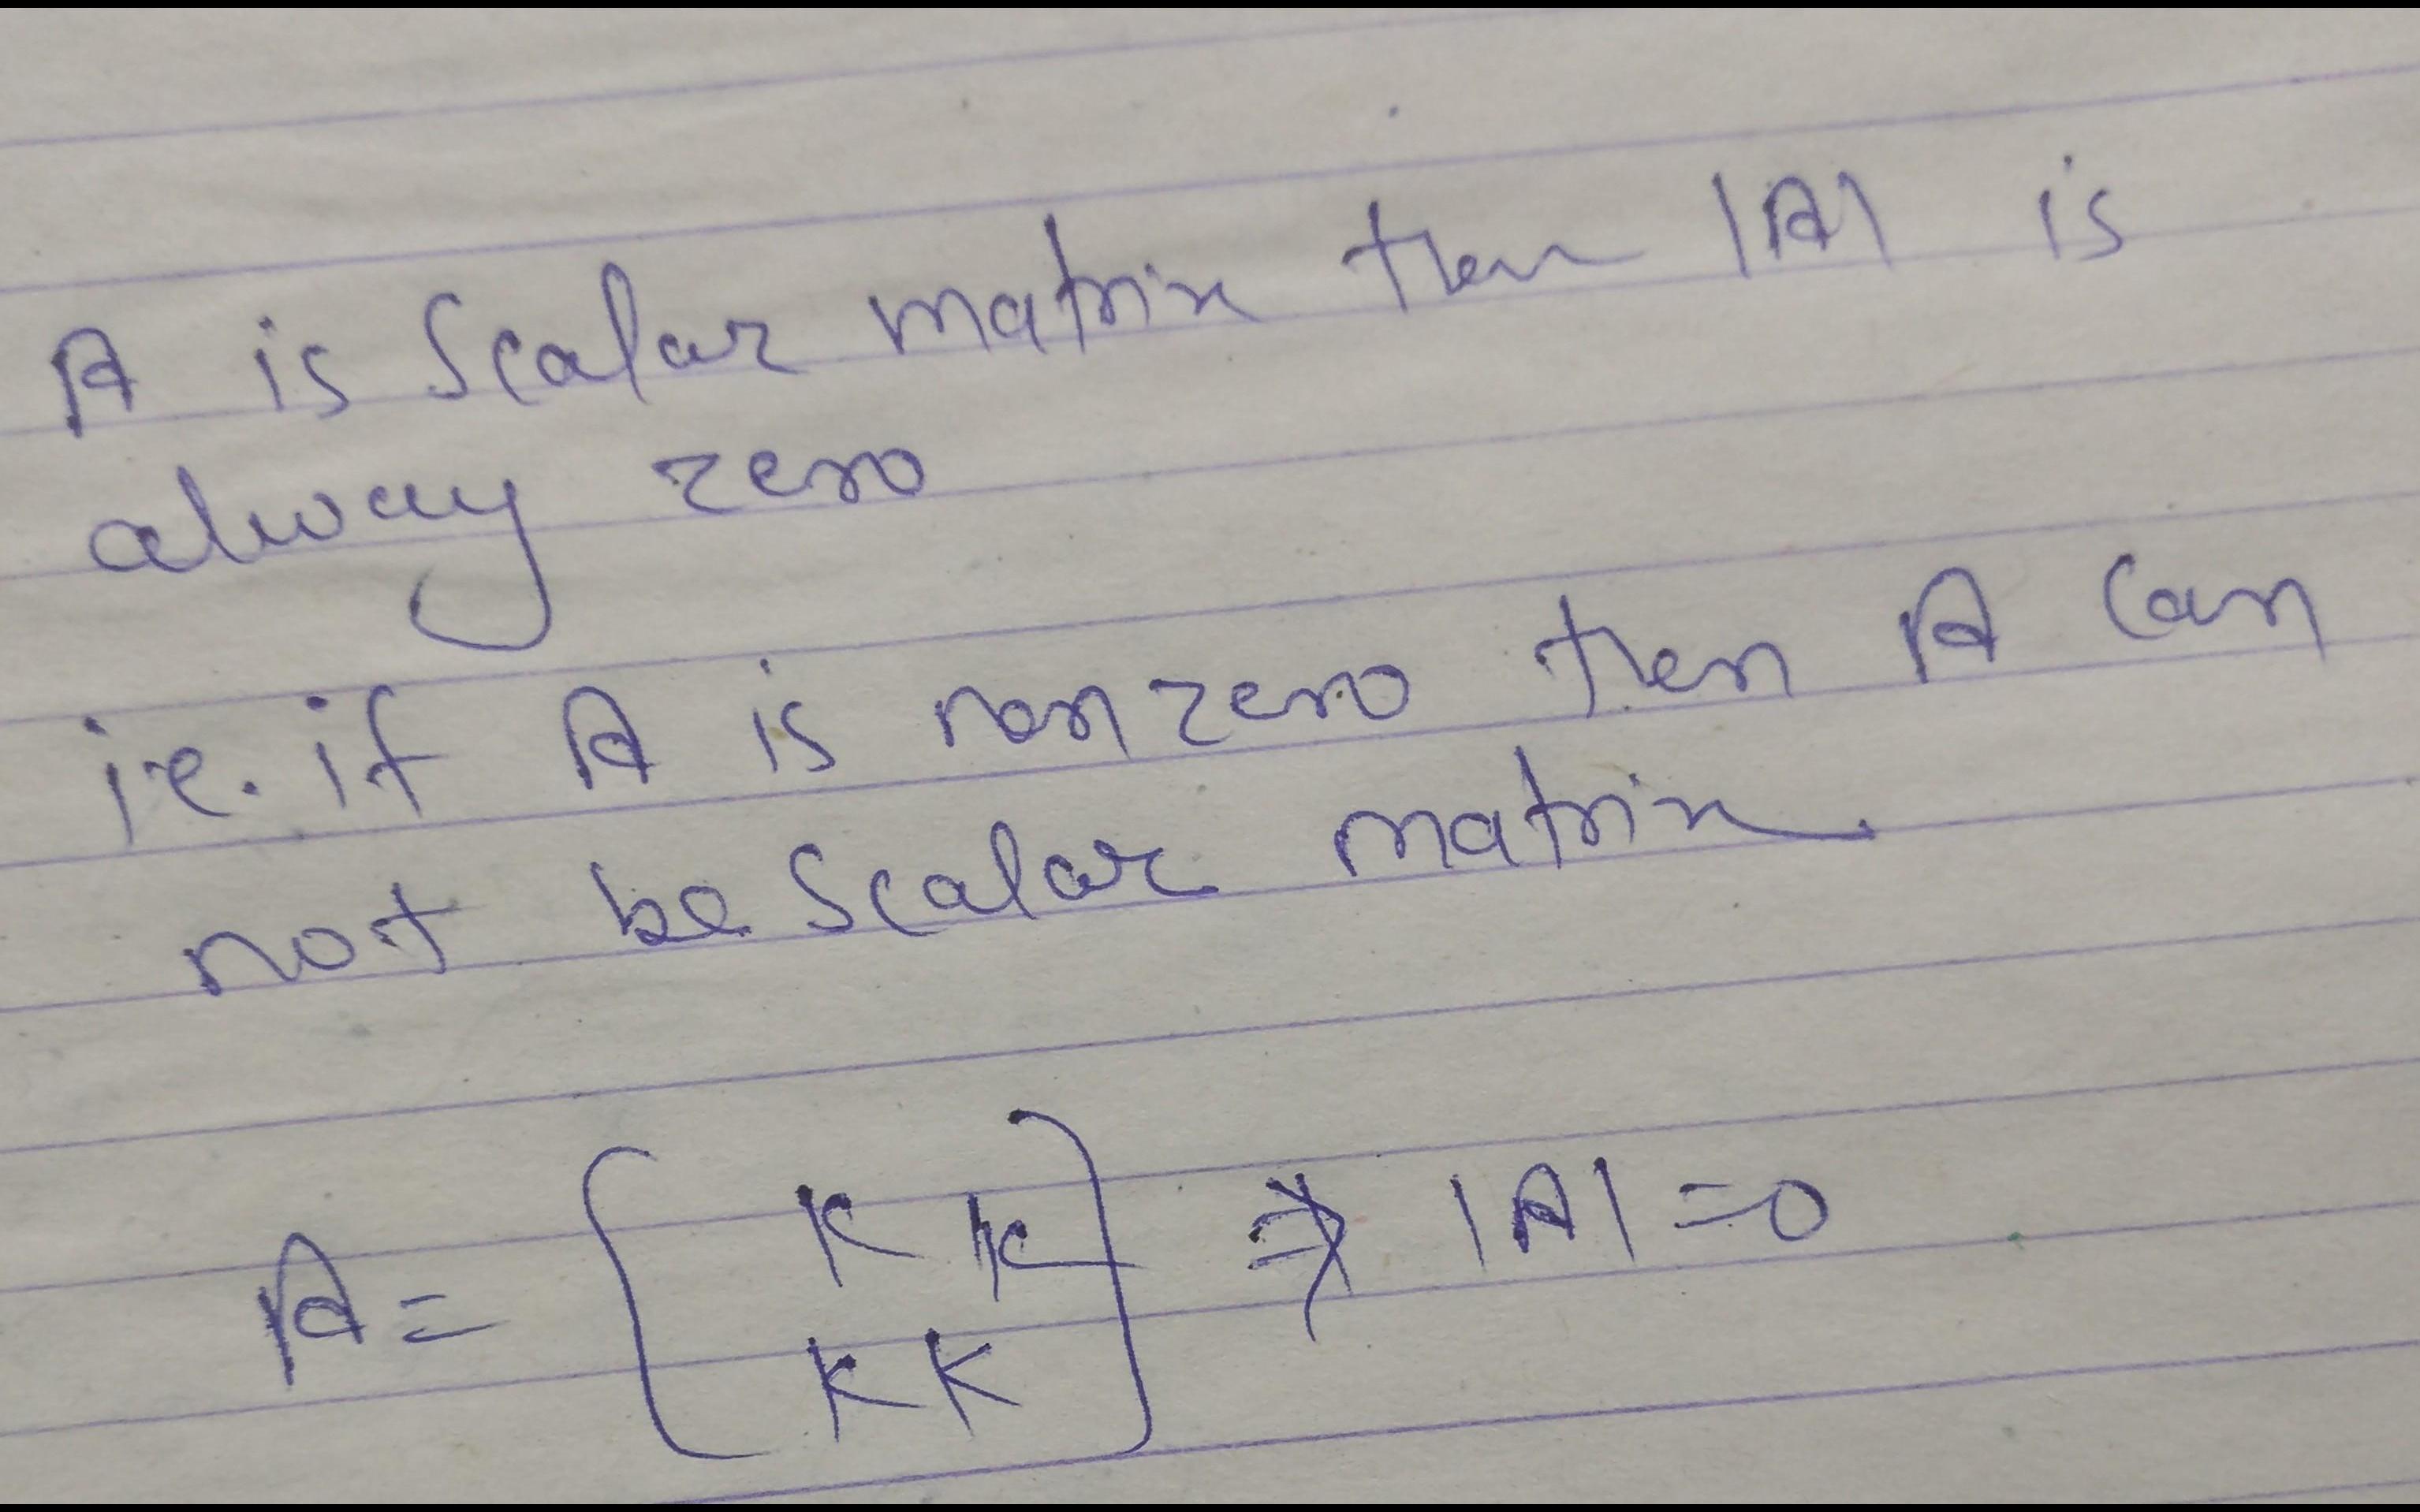 A is Scalar matrix then |A| is
alway zero
i.e. if A is non zero then A can
not be Scalar matrix
A = [ K K
K K ] ⇒ |A| = 0